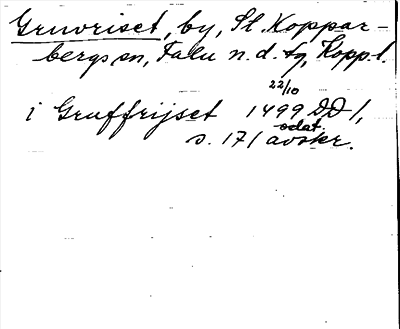 Gruvriset, by, St. Koppar-
bergs sn, Falu n. d. tg, Kopp. l.
22/10
i Gruffrijset 1499 DD 1,
odat.
s. 171 avskr.